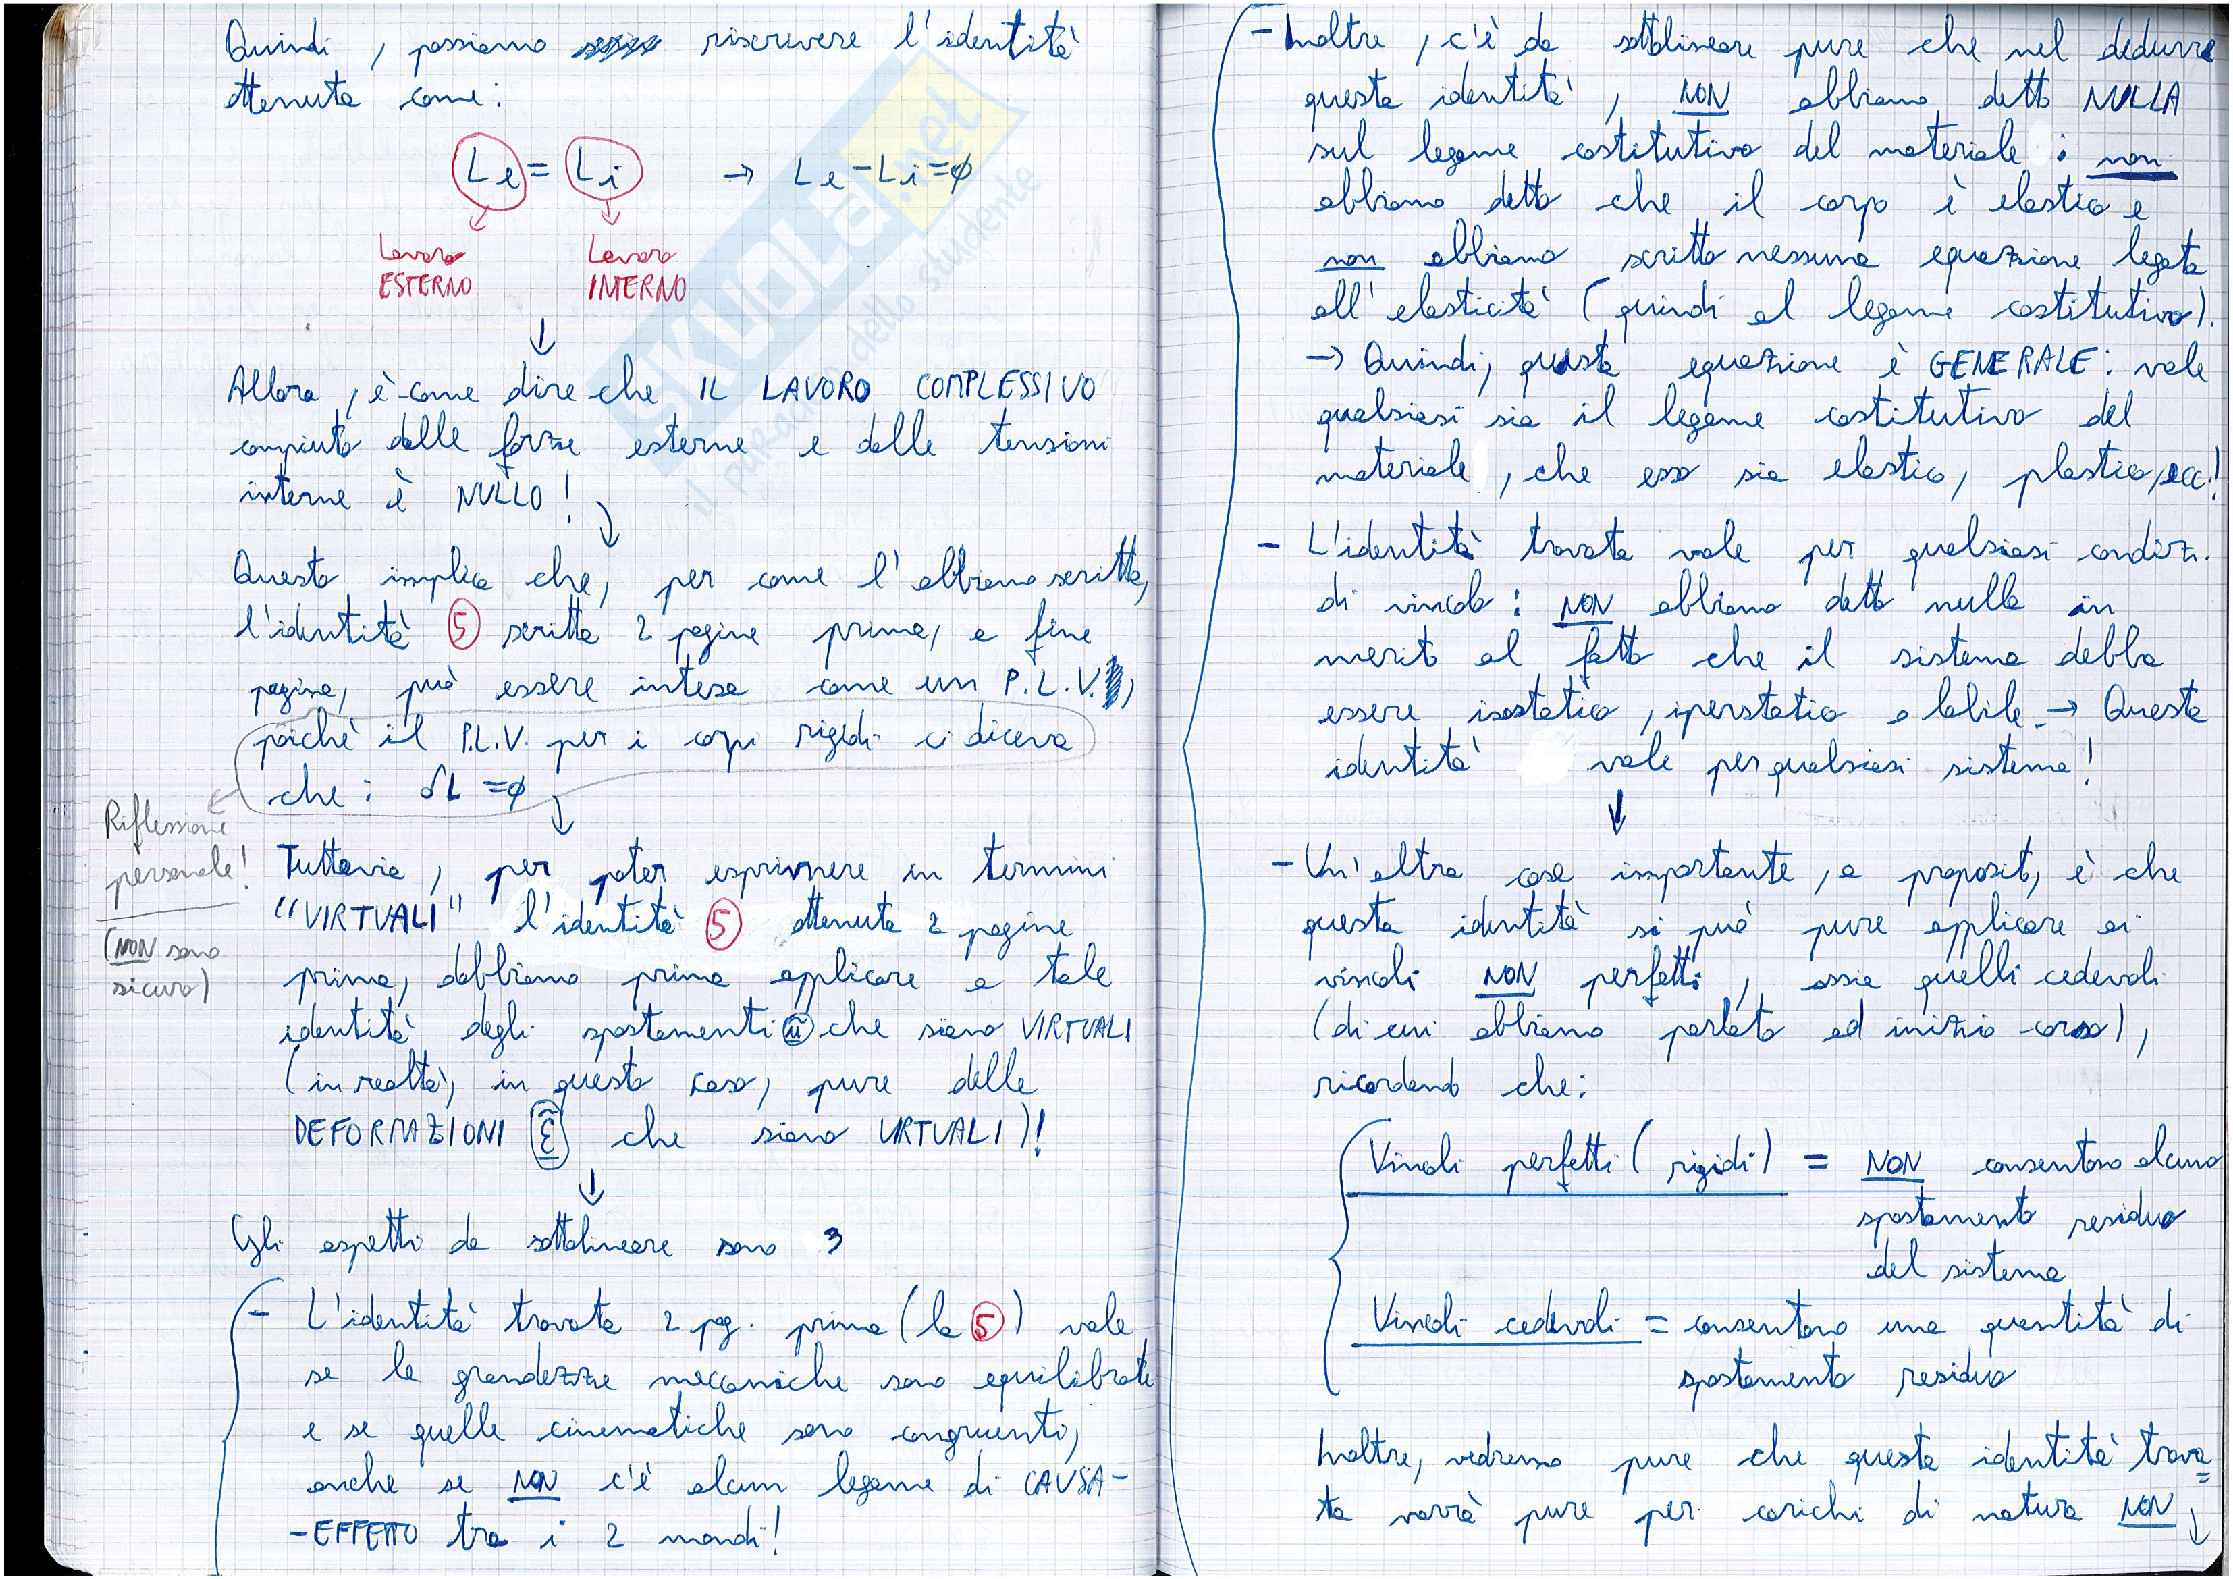 Quindi, possiamo riscrivere l'identità
ottenuta come:
Le = Li → Le - Li = ø
Lavoro ESTERNO
Lavoro INTERNO
↓
Allora, è come dire che IL LAVORO COMPLESSIVO
compiuto dalle forze esterne e dalle tensioni
interne è NULLO!
Questo implica che, per come l'abbiamo scritta,
l'identità 5 scritta 2 pagine prima, a fine
pagina, può essere intesa come un P.L.V.,
poichè il P.L.V. per i corpi rigidi ci diceva
che: δL = ø
Riflessione
personale!
(NON sono
sicuro)
Tuttavia, per poter esprimere in termini
"VIRTUALI" l'identità 5 ottenuta 2 pagine
prima, dobbiamo prima applicare a tale
identità degli spostamenti ũ che siano VIRTUALI
(in realtà, in questo caso, pure delle
DEFORMAZIONI ε̃ che siano VIRTUALI)!
↓
Gli aspetti da sottolineare sono 3
- L'identità trovata 2 pag. prima (la 5) vale
se le grandezze meccaniche sono equilibrate
e se quelle cinematiche sono congruenti,
anche se NON c'è alcun legame di CAUSA-
-EFFETTO tra i 2 mondi!
- Inoltre, c'è da sottolineare pure che nel dedurre
questa identità, NON abbiamo detto NULLA
sul legame costitutivo del materiale: non
abbiamo detto che il corpo è elastico e
non abbiamo scritto nessuna equazione legata
all'elasticità (quindi al legame costitutivo).
→ Quindi, questa equazione è GENERALE: vale
qualsiasi sia il legame costitutivo del
materiale, che esso sia elastico, plastico, ecc!
- L'identità trovata vale per qualsiasi condiz.
di vincolo: NON abbiamo detto nulla in
merito al fatto che il sistema debba
essere isostatico, iperstatico o labile → Questa
identità vale per qualsiasi sistema!
↓
- Un'altra cosa importante, a proposito, è che
questa identità si può pure applicare ai
vincoli NON perfetti, ossia quelli cedevoli
(di cui abbiamo parlato ad inizio corso),
ricordando che:
Vincoli perfetti (rigidi) = NON consentono alcuno
spostamento residuo
del sistema
Vincoli cedevoli = consentono una quantità di
spostamento residuo
Inoltre, vedremo pure che questa identità trova=
ta varrà pure per carichi di natura NON ↓
SKUOLA.net
il paradiso dello studente